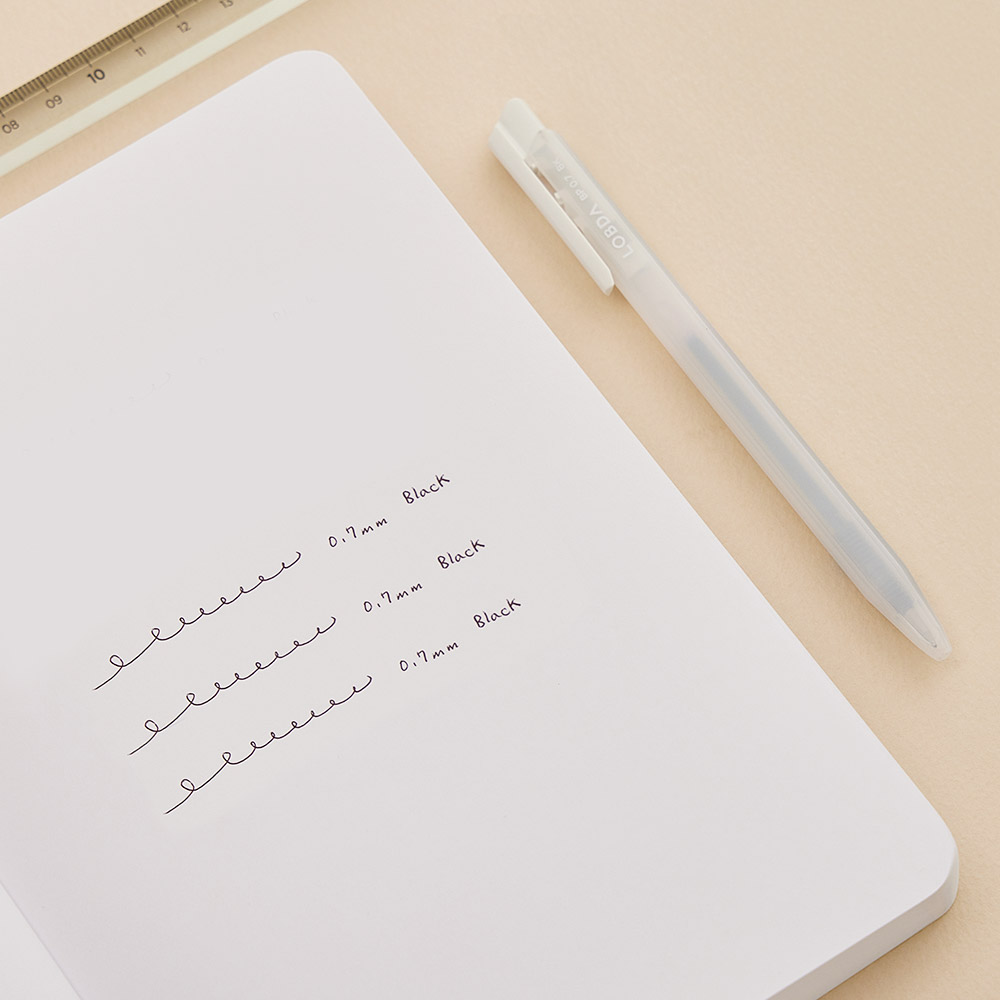 08 09 10 11 12 13
LOBDA BP 0.7 BK
0.7mm Black
0.7mm Black
0.7mm Black